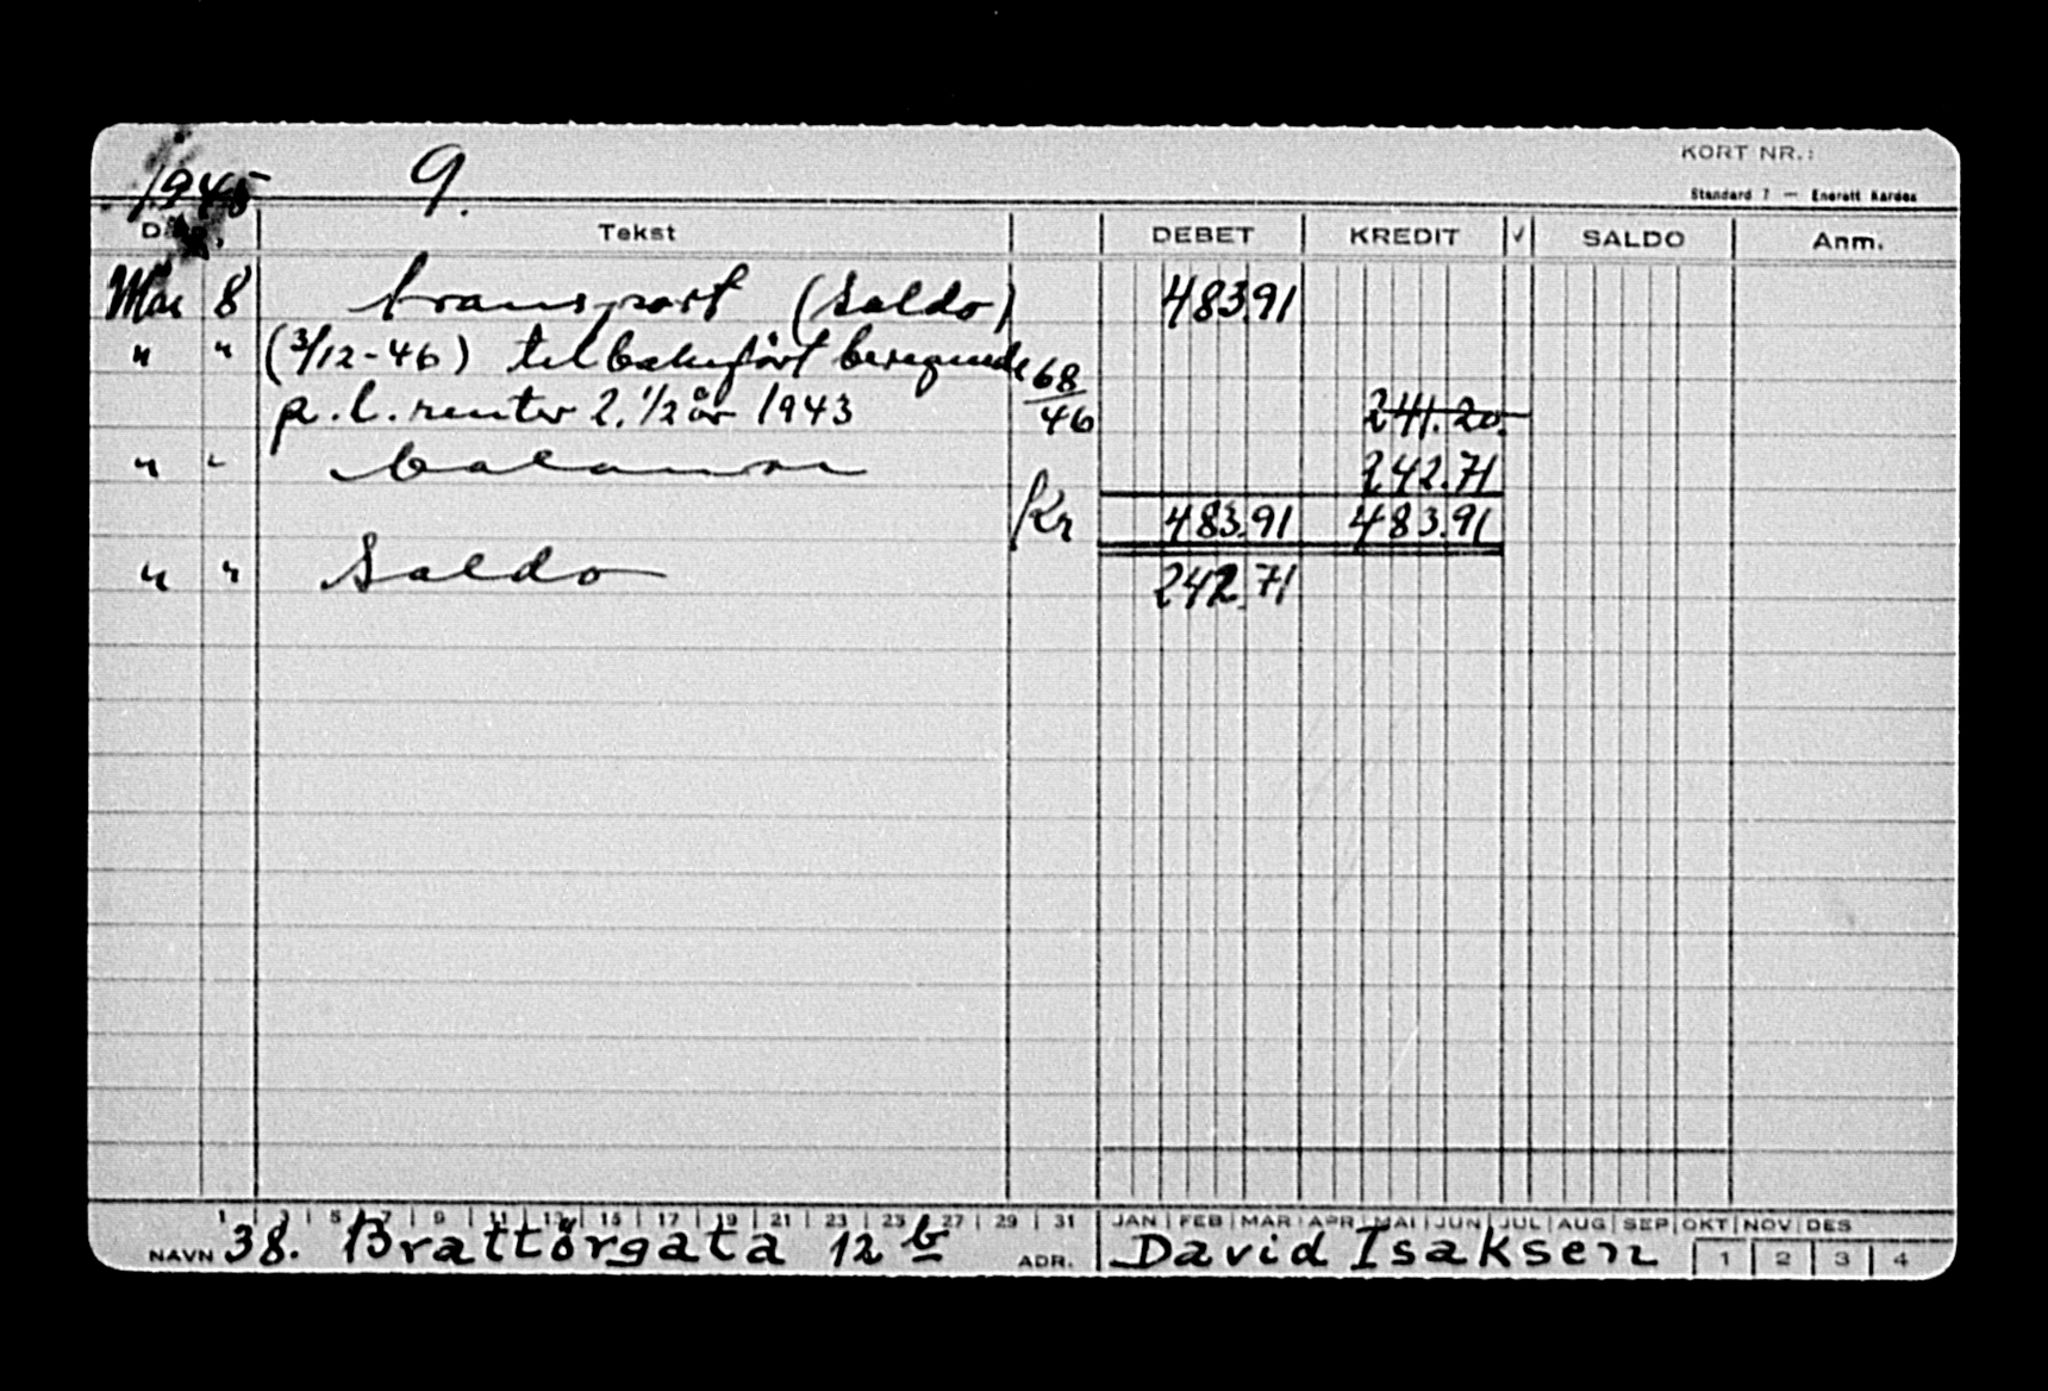 KORT NR.:
1945 9.
Standard 7 — Enerett Kardex
Dato. Tekst DEBET KREDIT √ SALDO Anm.
Mai 8 transport (Saldo) 483.91
" " (3/12-46) tilbakeført beregnede 68/46
p.l. renter 2. 1/2 år 1943 241.20.
" " balanse 242.71
Kr 483.91 483.91
" " Saldo 242.71
1 3 5 7 9 11 13 15 17 19 21 23 25 27 29 31 JAN FEB MAR APR MAI JUN JUL AUG SEP OKT NOV DES
NAVN 38. Brattørgata 12 b ADR. David Isaksen 1 2 3 4